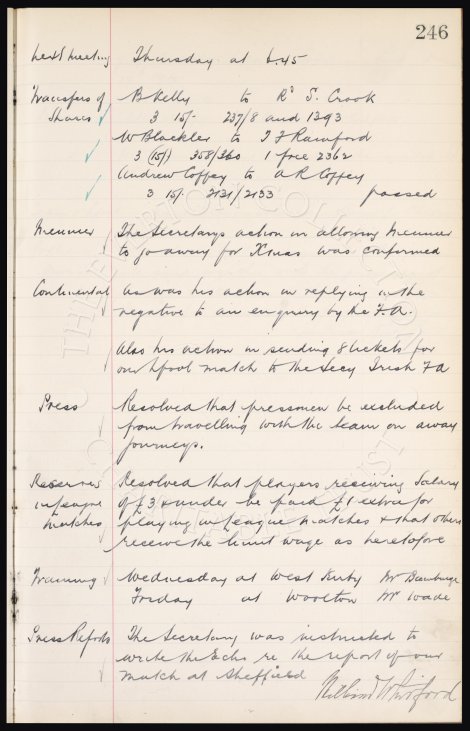 246
next meeting Thursday at 6.45
Transfers of B Kelly to Rd S. Crook
Shares 3 15/- 237/8 and 1293
W Blackler to T J Rainford
3 (15/) 358/360 1 free 2362
Andrew Coffey to A R Coffey
3 15/- 2131/2133 passed
Menmuir The Secretarys action in allowing Menmuir
to go away for Xmas was confirmed
Continental as was his action in replying in the
negative to an enquiry by the F.A.
Also his action in sending 8 tickets for
our Lpool match to the Secy Irish FA
Press Resolved that pressmen be excluded
from travelling with the team on away
journeys.
Reserves Resolved that players receiving Salary
in League of £3 & under be paid £1 extra for
Matches playing in League Matches & that others
receive the limit wage as heretofore
Training Wednesday at West Kirby Mr Bainbridge
Friday at Woolton Mr Wade
Press Reports The Secretary was instructed to
write the Echo re the report of our
match at Sheffield
THE EVERTON COLLECTION